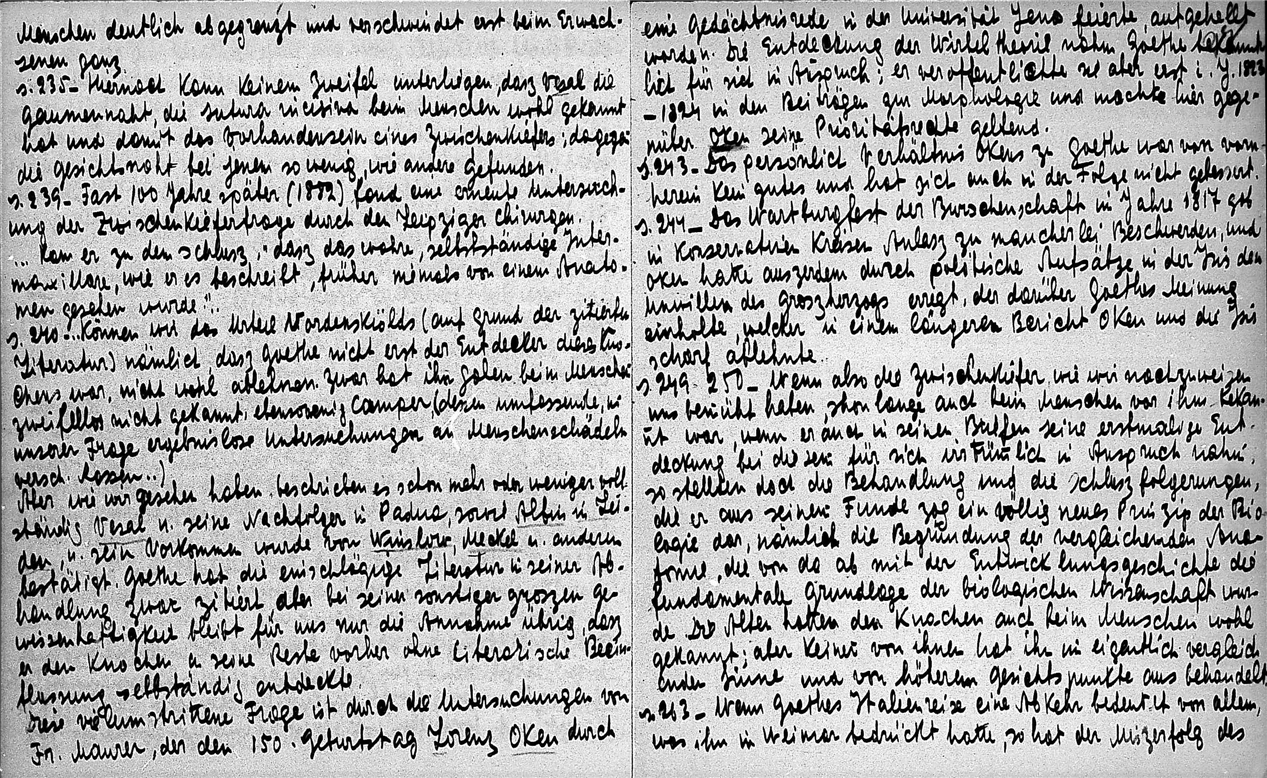 Menschen deutlich abgegrenzt und verschwindet erst beim Erwach-
senen ganz.
s.235- Hiernach kann keinem Zweifel unterliegen, dasz Vesal die
Gaumennaht, die sutura incisiva beim Menschen wohl gekannt
hat und damit das Vorhandensein eines Zwischenkiefers; dagegen
die Gesichtsnaht bei jenem so wenig, wie andere gefunden.
s.239- Fast 100 Jahre später (1882) fand eine erneute Untersuch-
ung der Zwischenkieferfrage durch den Leipziger Chirurgen.
... kam er zu den schlusz, "dasz das wahre, selbstständige Inter-
maxillare, wie er es beschreibt, früher niemals von einem Anato-
men gesehen wurde"..
s. 240 -.. Können wir das Urteil Nordenskiölds (auf Grund der zitierten
Literatur) nämlich, dasz Goethe nicht erst der Entdecker dieses Kno-
chens war, nicht wohl ablehnen. Zwar hat ihn Galen beim Menschen
zweifellos nicht gekannt, ebensowenig Camper, (dessen umfassende, in
unserer Frage ergebnislose Untersuchungen an Menschenschädeln
versch. Rassen..)
Aber, wie wir gesehen haben, beschrieben es schon mehr oder weniger voll-
ständig Vesal u. seine Nachfolger in Padua, sowie Albin in Lei-
den, u. sein Vorkommen wurde von Winslow, Meckel u. anderen
bestätigt. Goethe hat die einschlägige Literatur in seiner Ab-
handlung zwar zitiert, aber bei seiner sonstiger groszen Ge-
wissenhaftigkeit bleibt für uns nur die Annahme übrig, dasz
er den Knochen u seine Reste vorher ohne literarische Beein-
flussung selbständig entdeckte
Diese vielumstrittene Frage ist durch die Untersuchungen von
Fr. Maurer, der den 150. Geburtstag Lorenz Oken durch
eine Gedächtnisrede in der Universität Jena feierte aufgehellt
worden. Die Entdeckung der Wirbeltheorie nahm Goethe bekannt-
lich für sich in Anspruch; er veröffentlichte sie aber erst i. J. 1823
-1824 in den Beiträgen zur Morphologie und machte hier gege-
nüber Oken seine Prioritätsrechte geltend.
s.243- Das persönlich Verhältnis Okens zu Goethe war von vorn-
herein kein gutes und hat sich auch in der Folge nicht gebessert.
s. 244- Das Wartburgfest der Burschenschaft in Jahre 1817 gab
in Konservativen Kreisen Anlasz zu mancherlei Beschwerden, und
Oken hatte auszerdem durch politische Aufsätze in der Isis den
Unwillen des Groszherzogs erregt, der darüber Goethes Meinung
einholte, welcher in einem längeren Bericht Oken und die Isis
scharf ablehnte.
s. 249-250- Wenn also die Zwischenkiefer, wie wir nachzuweisen
uns bemüht haben, schon lange auch beim Menschen vor ihm bekan-
nt war, wenn er auch in seinen Briefen seine erstmalige Ent-
deckung bei diesem für sich irrtümlich in Anspruch nahm,
so stellten doch die Behandlung und die Schluszfolgerungen,
die er aus seinem Funde zog ein völlig neues Prinzip der Bio-
logie dar, nämlich die Begründung der vergleichenden Ana-
tomie, die von da ab mit der Entwicklungsgeschichte die
fundamentale Grundlage der biologischen Wissenschaft wur-
de. Die Alten hatten den Knochen auch beim Menschen wohl
gekannt; aber keiner von ihnen hat ihn in eigentlich vergleich
enden Sinne und von höheren Gesichtspunkte aus behandelt
s.213- Wenn Goethes Italienreise eine Abkehr bedeutet von allem,
was ihn in Weimar bedrückt hatte, so hat der Miszerfolg des